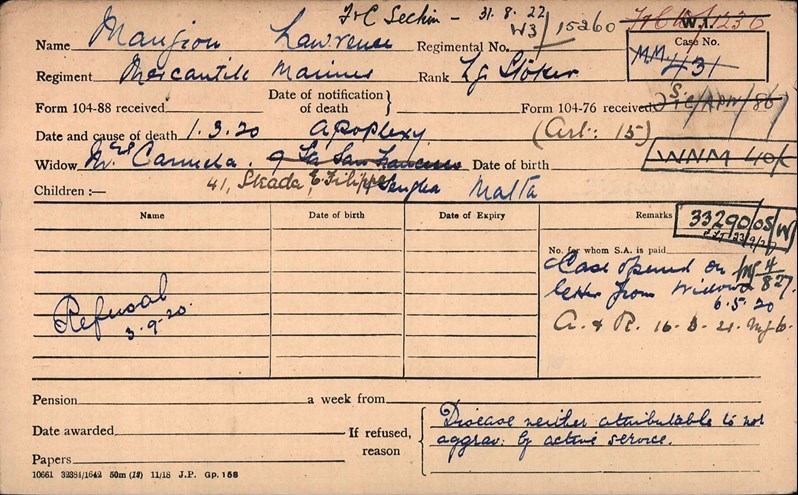 F+C Section - 31.8.22
W3/15260
W.I. 1236
Name Mangion Lawrence Regimental No.
Case No.
MM 431
Regiment Mercantile Marines Rank Lg Stoker
Form 104-88 received Date of notification of death } Form 104-76 received
Date and cause of death 1.3.20 apoplexy. (Art: 15)
Widow Mrs Carmela. 9 Sda San Francesco Date of birth
WNM 40/
41, Strada E. Filippo Senglea Malta
Children :—
Name Date of birth Date of Expiry Remarks
33290/05/W
No. for whom S.A. is paid
Case opened on
letter from widow
6.5.20
4/827.
A. & R.
Refusal
3.9.20.
Pension a week from
Date awarded If refused, reason
Disease neither attributable to nor
aggrav: by active service.
Papers
10661 32384/1642 50m (13) 11/18 J.P. Gp. 158